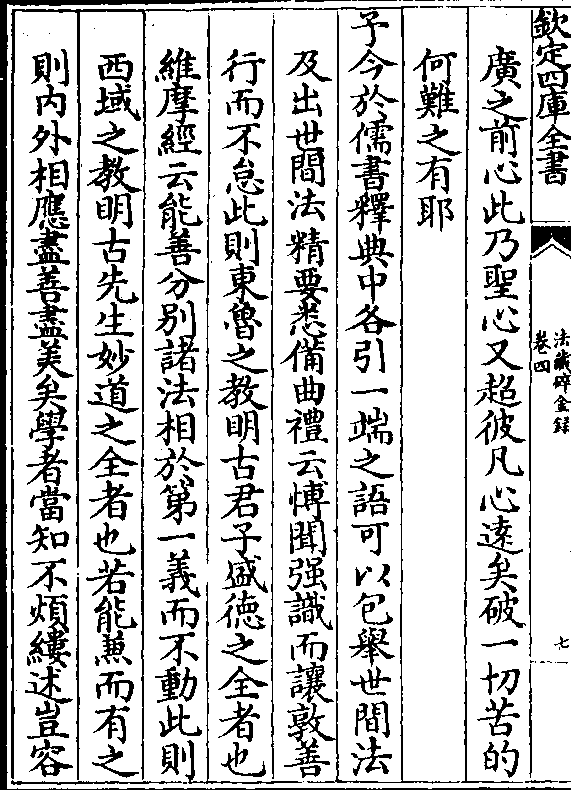 欽定四庫全書
法藏碎金録
卷四
七
廣之前心此乃聖心又超彼凡心遠矣破一切苦的
何難之有耶
予今於儒書釋典中各引一端之語可以包舉世間法
及出世間法精要悉備曲禮云愽聞强識而讓敦善
行而不怠此則東魯之教明古君子盛徳之全者也
維摩經云能善分别諸法相於第一義而不動此則
西域之教明古先生妙道之全者也若能兼而有之
則内外相應盡善盡美矣學者當知不煩縷述豈容